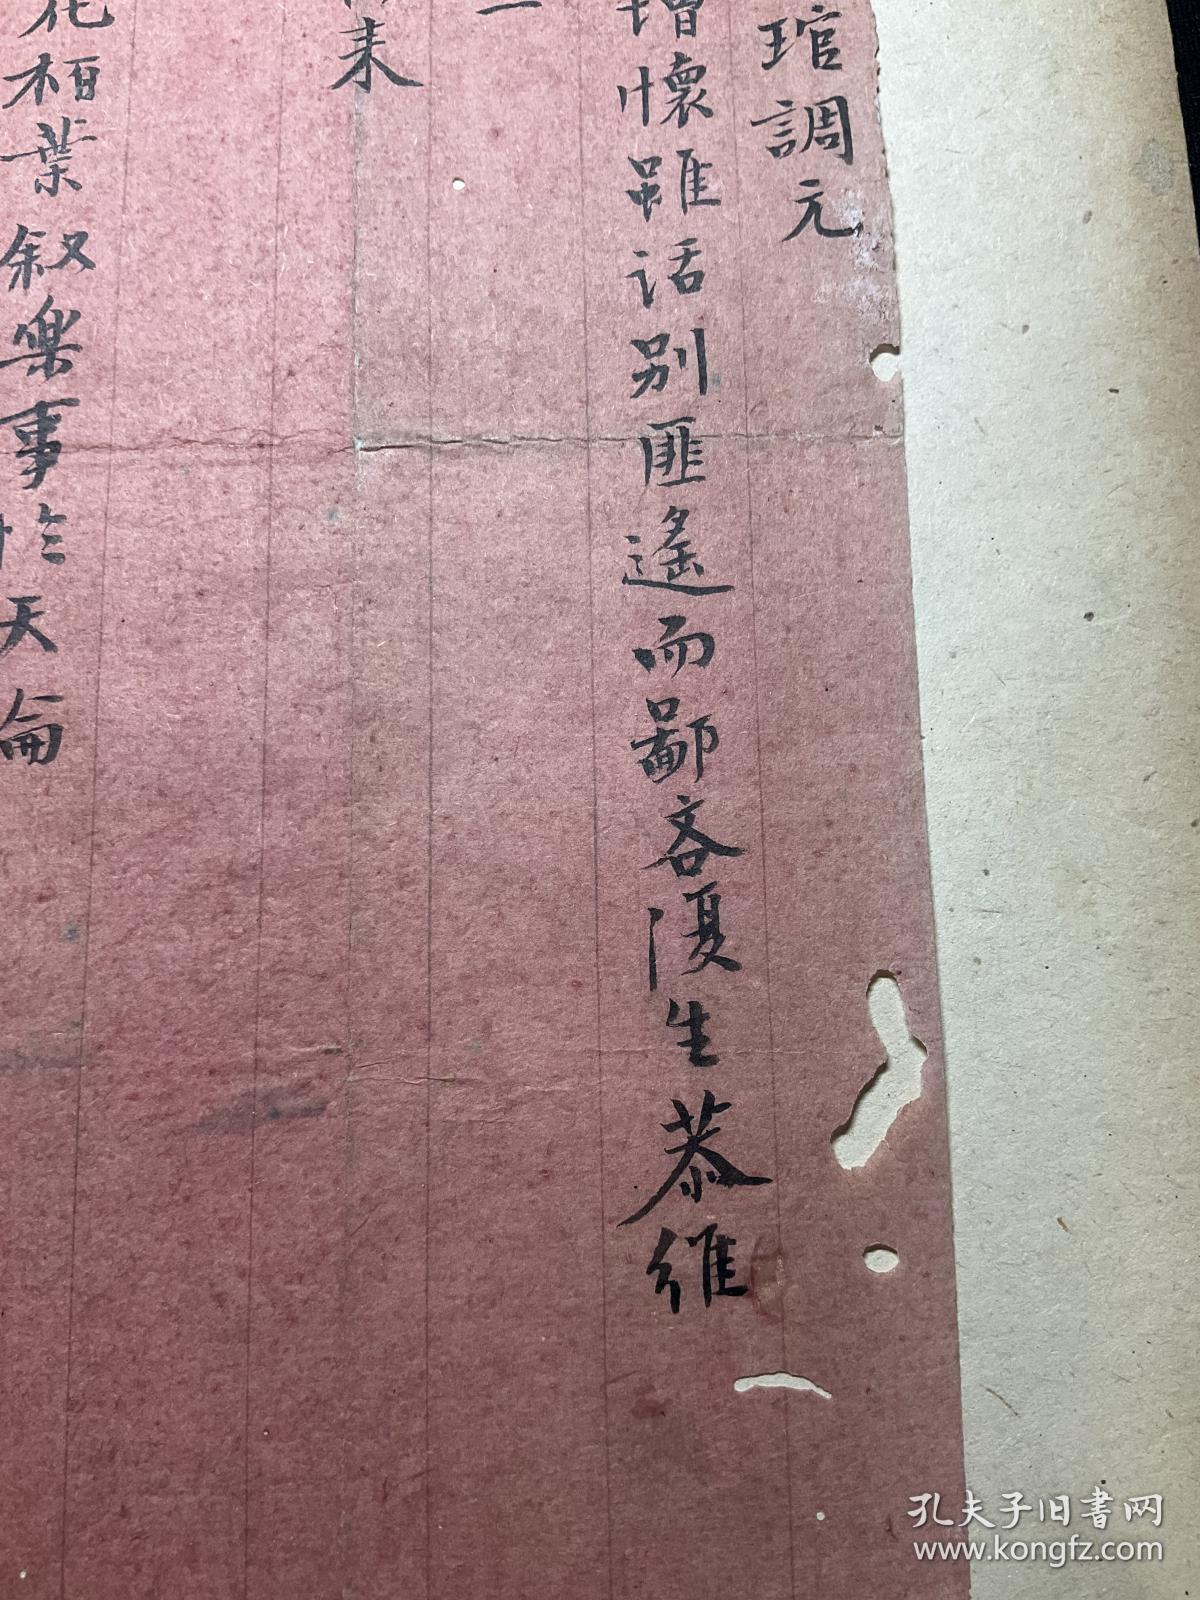 琯調元
增懷雖話别匪遙而鄙吝復生恭維
一
来
花栢葉叙樂事於天倫
孔夫子旧书网
www.kongfz.com